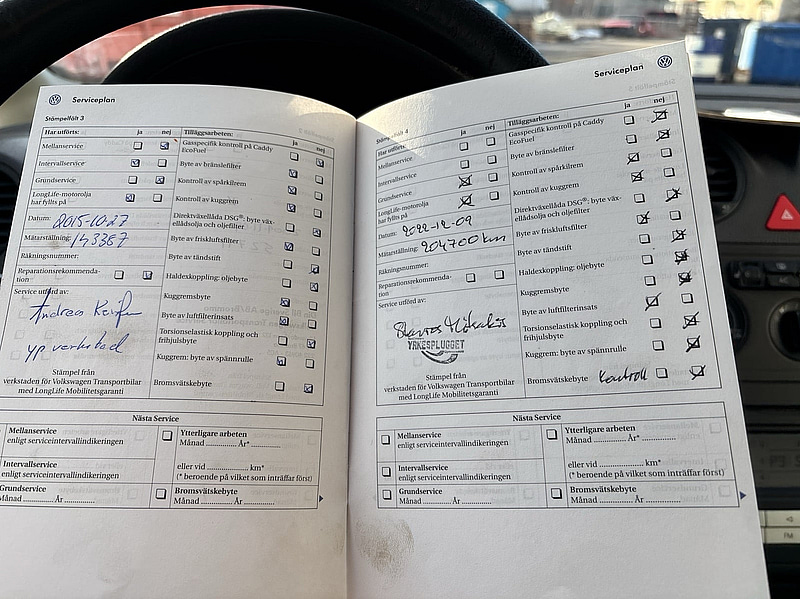 Serviceplan
Stämpelfält 3
Har utförts: ja nej
Mellanservice
Intervallservice
Grundservice
LongLife-motorolja
har fyllts på
Datum: 2015-10-27
Mätarställning: 143367
Räkningsnummer:
Reparationsrekommenda-
tion
Service utförd av:
Andreas
yp verkstad
Stämpel från
verkstaden för Volkswagen Transportbilar
med LongLife Mobilitetsgaranti
Tilläggsarbeten: ja nej
Gasspecifik kontroll på Caddy
EcoFuel
Byte av bränslefilter
Kontroll av spårkilrem
Kontroll av kuggrem
Direktväxellåda DSG®: byte väx-
ellådsolja och oljefilter
Byte av friskluftsfilter
Byte av tändstift
Haldexkoppling: oljebyte
Kuggremsbyte
Byte av luftfilterinsats
Torsionselastisk koppling och
frihjulsbyte
Kuggrem: byte av spännrulle
Bromsvätskebyte
Nästa Service
Mellanservice
enligt serviceintervallindikeringen
Intervallservice
enligt serviceintervallindikeringen
Grundservice
Månad .......... År ..............
Ytterligare arbeten
Månad .............. År*..............
eller vid .................. km*
(* beroende på vilket som inträffar först)
Bromsvätskebyte
Månad .............. År ..............
Serviceplan
Stämpelfält 4
Har utförts: ja nej
Mellanservice
Intervallservice
Grundservice
LongLife-motorolja
har fyllts på
Datum: 2022-12-09
Mätarställning: 204700 km
Räkningsnummer:
Reparationsrekommenda-
tion
Service utförd av:
YRKESPLUGGET
Stämpel från
verkstaden för Volkswagen Transportbilar
med LongLife Mobilitetsgaranti
Tilläggsarbeten: ja nej
Gasspecifik kontroll på Caddy
EcoFuel
Byte av bränslefilter
Kontroll av spårkilrem
Kontroll av kuggrem
Direktväxellåda DSG®: byte väx-
ellådsolja och oljefilter
Byte av friskluftsfilter
Byte av tändstift
Haldexkoppling: oljebyte
Kuggremsbyte
Byte av luftfilterinsats
Torsionselastisk koppling och
frihjulsbyte
Kuggrem: byte av spännrulle
Bromsvätskebyte Kontroll
Nästa Service
Mellanservice
enligt serviceintervallindikeringen
Intervallservice
enligt serviceintervallindikeringen
Grundservice
Månad .............. År ..............
Ytterligare arbeten
Månad .............. År*..............
eller vid .................. km*
(* beroende på vilket som inträffar först)
Bromsvätskebyte
Månad .............. År ..............
FM